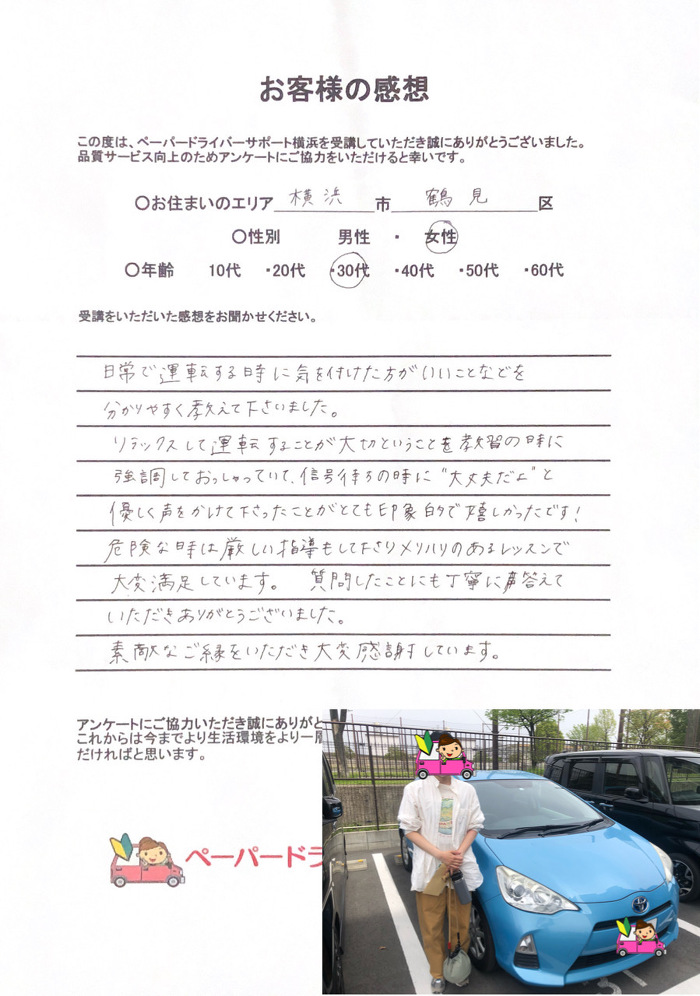 お客様の感想
この度は、ペーパードライバーサポート横浜を受講していただき誠にありがとうございました。
品質サービス向上のためアンケートにご協力をいただけると幸いです。
〇お住まいのエリア 横浜 市 鶴見 区
〇性別 男性 ・ 女性
〇年齢 10代 ・20代 ・30代 ・40代 ・50代 ・60代
受講をいただいた感想をお聞かせください。
日常で運転する時に気を付けた方がいいことなどを
分かりやすく教えて下さいました。
リラックスして運転することが大切ということを教習の時に
強調しておっしゃっていて、信号待ちの時に"大丈夫だよ"と
優しく声をかけて下さったことがとても印象的で嬉しかったです!
危険な時は厳しい指導もして下さりメリハリのあるレッスンで
大変満足しています。 質問したことにも丁寧に答えて
いただきありがとうございました。
素敵なご縁をいただき大変感謝しています。
アンケートにご協力いただき誠にありがと
これからは今までより生活環境をより一層
だければと思います。
ペーパードラ